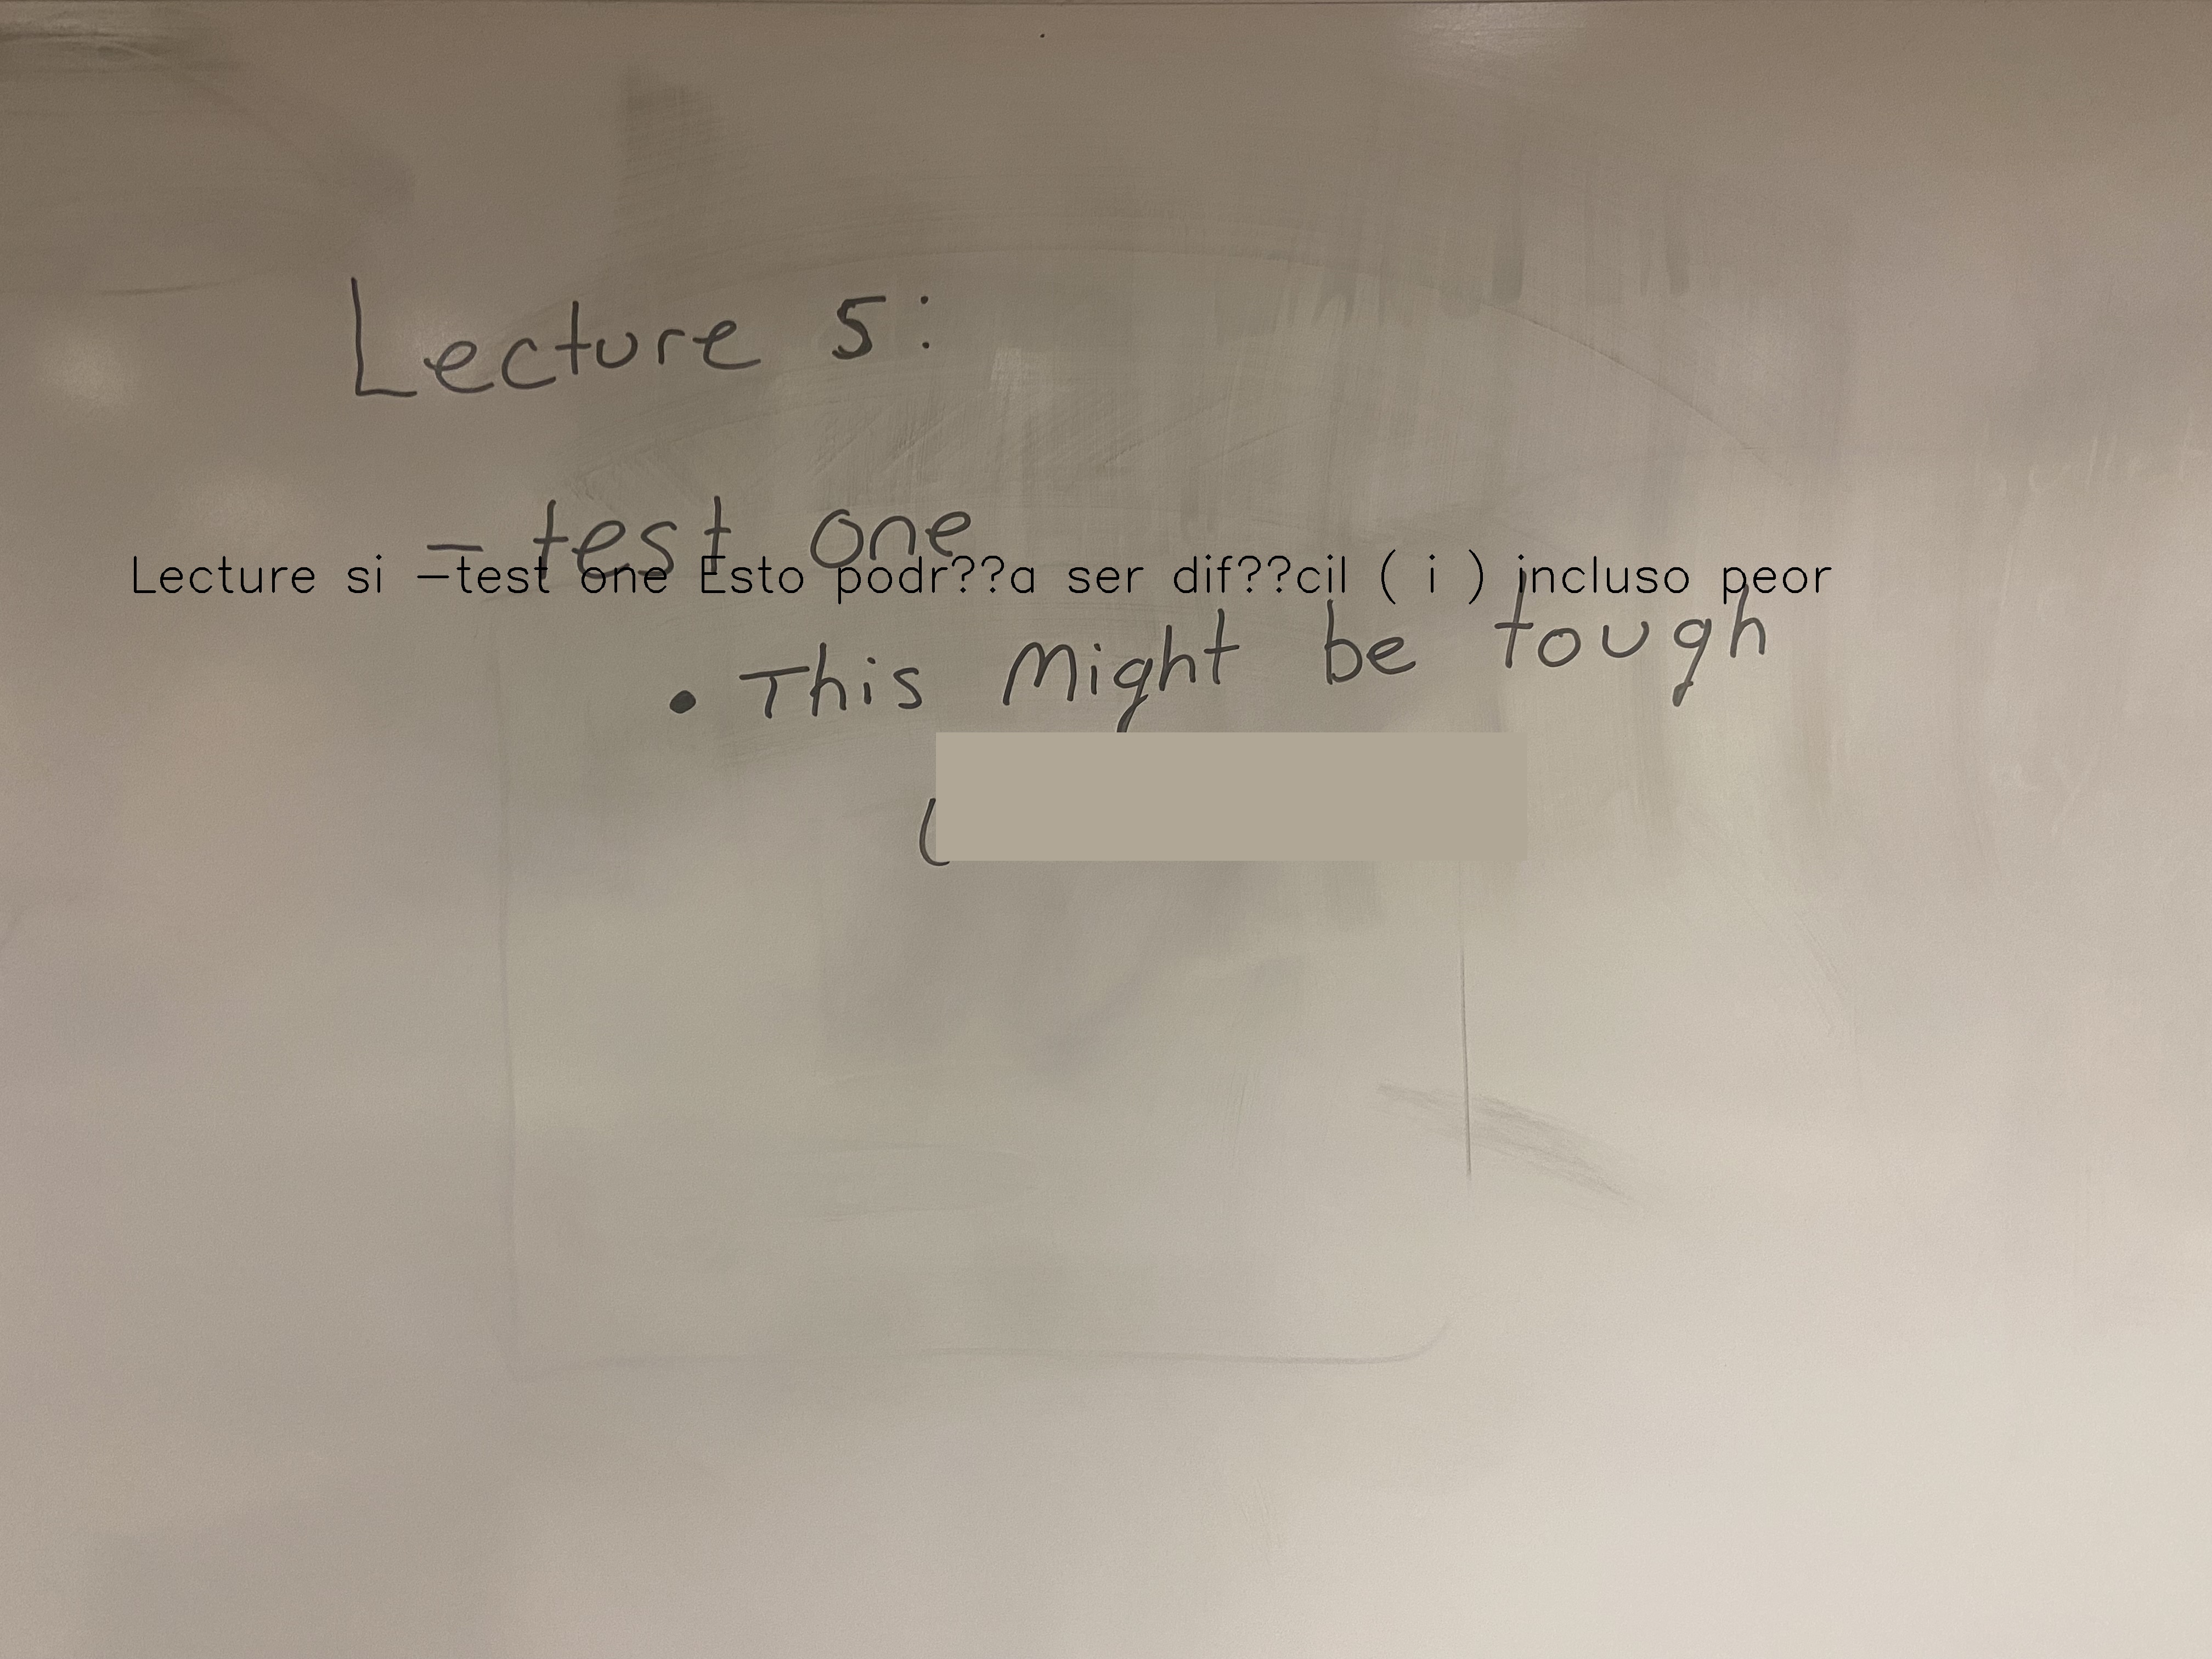 Lecture 5:
- test one
Lecture si -test one Esto podr??a ser dif??cil ( i ) incluso peor
• This Might be tough
(